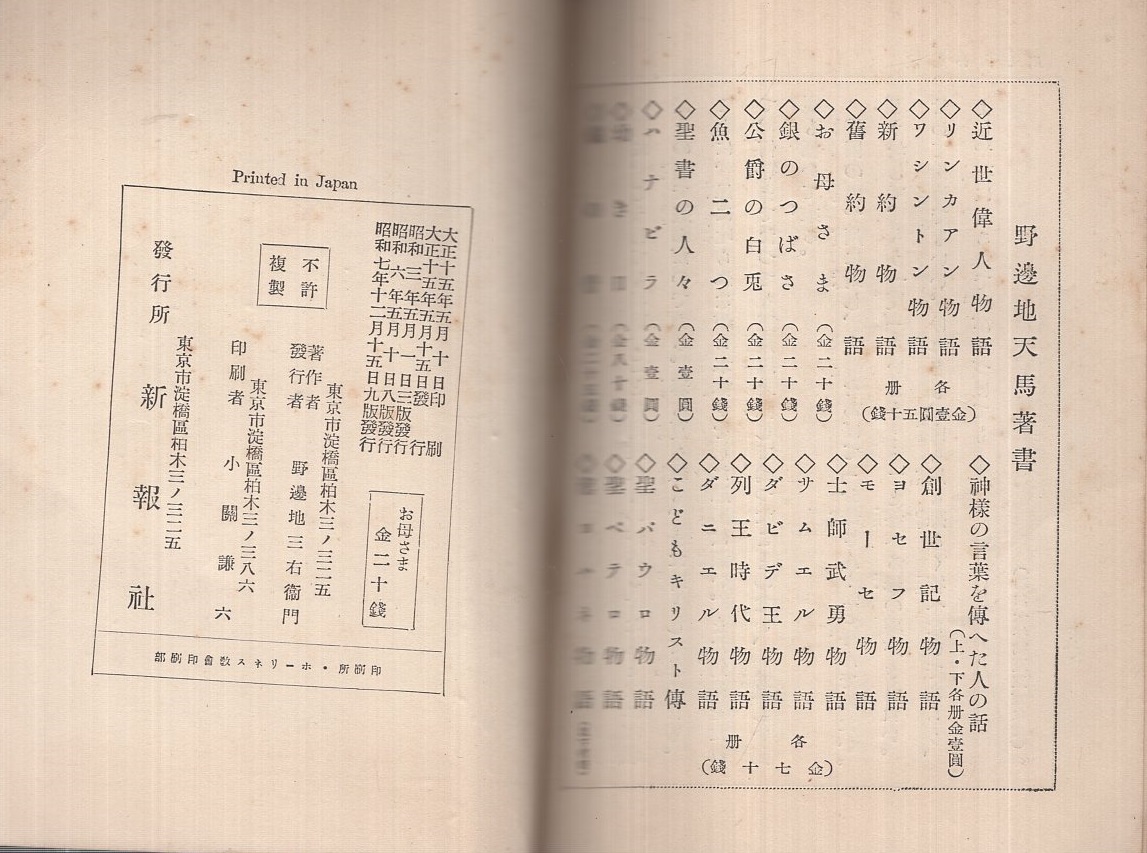 野邊地天馬著書
◇近世偉人物語
◇リンカアン物語
◇ワシントン物語
◇新約物語
◇舊約物語
各册
(金壹圓五十錢)
◇お母さま(金二十錢)
◇銀のつばさ(金二十錢)
◇公爵の白兎(金二十錢)
◇魚二つ(金二十錢)
◇聖書の人々(金壹圓)
◇ハナビラ(金壹圓)
◇神樣の言葉を傳へた人の話
(上・下各册金壹圓)
◇創世記物語
◇ヨセフ物語
◇モーセ物語
◇士師武勇物語
◇サムエル物語
◇ダビデ王物語
◇列王時代物語
◇ダニエル物語
各册
(金七十錢)
◇こどもキリスト傳
◇聖パウロ物語
◇聖ペテロ物語
Printed in Japan
大正十五年五月十日印刷
大正十五年五月十五日發行
昭和三年五月一日三版發行
昭和六年五月十日八版發行
昭和七年十二月十五日九版發行
お母さま
金二十錢
不許
複製
東京市淀橋區柏木三ノ三二五
著作者
發行者 野邊地三右衞門
東京市淀橋區柏木三ノ三八六
印刷者 小關謙六
東京市淀橋區柏木三ノ三二五
發行所 新報社
印刷所・ホーリネス敎會印刷部